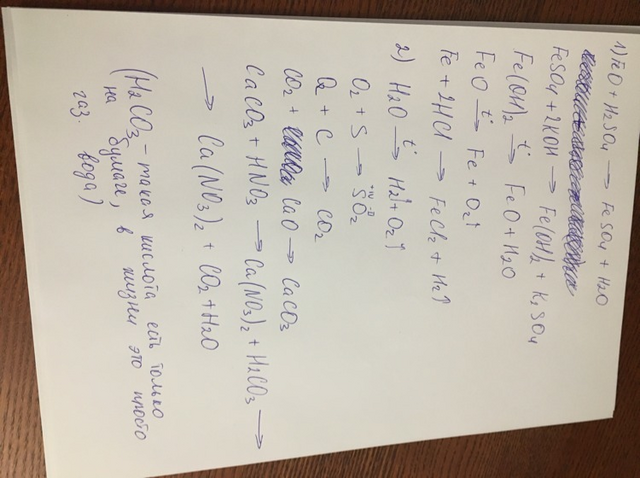 1) FeO + H2SO4 → FeSO4 + H2O
FeSO4 + 2KOH → Fe(OH)2 + K2SO4
Fe(OH)2 t°→ FeO + H2O
FeO t°→ Fe + O2↑
Fe + 2HCl → FeCl2 + H2↑
2) H2O t°→ H2↑ + O2↑
O2 + S → +IV -II SO2
O2 + C → CO2
CO2 + CaO → CaCO3
CaCO3 + HNO3 → Ca(NO3)2 + H2CO3 →
→ Ca(NO3)2 + CO2 + H2O
(H2CO3 - такая кислота есть только
на бумаге, в жизни это просто
газ. вода)